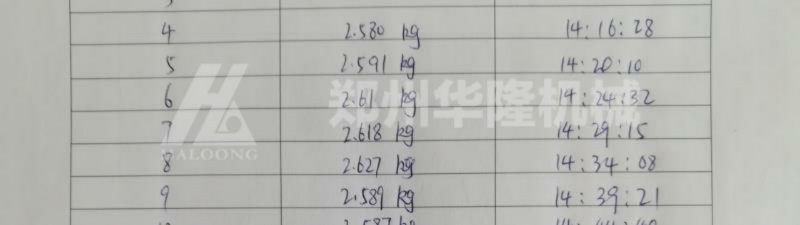 4 2.580 kg 14:16:28
5 2.591 kg 14:20:10
6 2.61 kg 14:24:32
7 2.618 kg 14:29:15
8 2.627 kg 14:34:08
9 2.589 kg 14:39:21
2.587 kg
郑州华隆机械
HALOONG